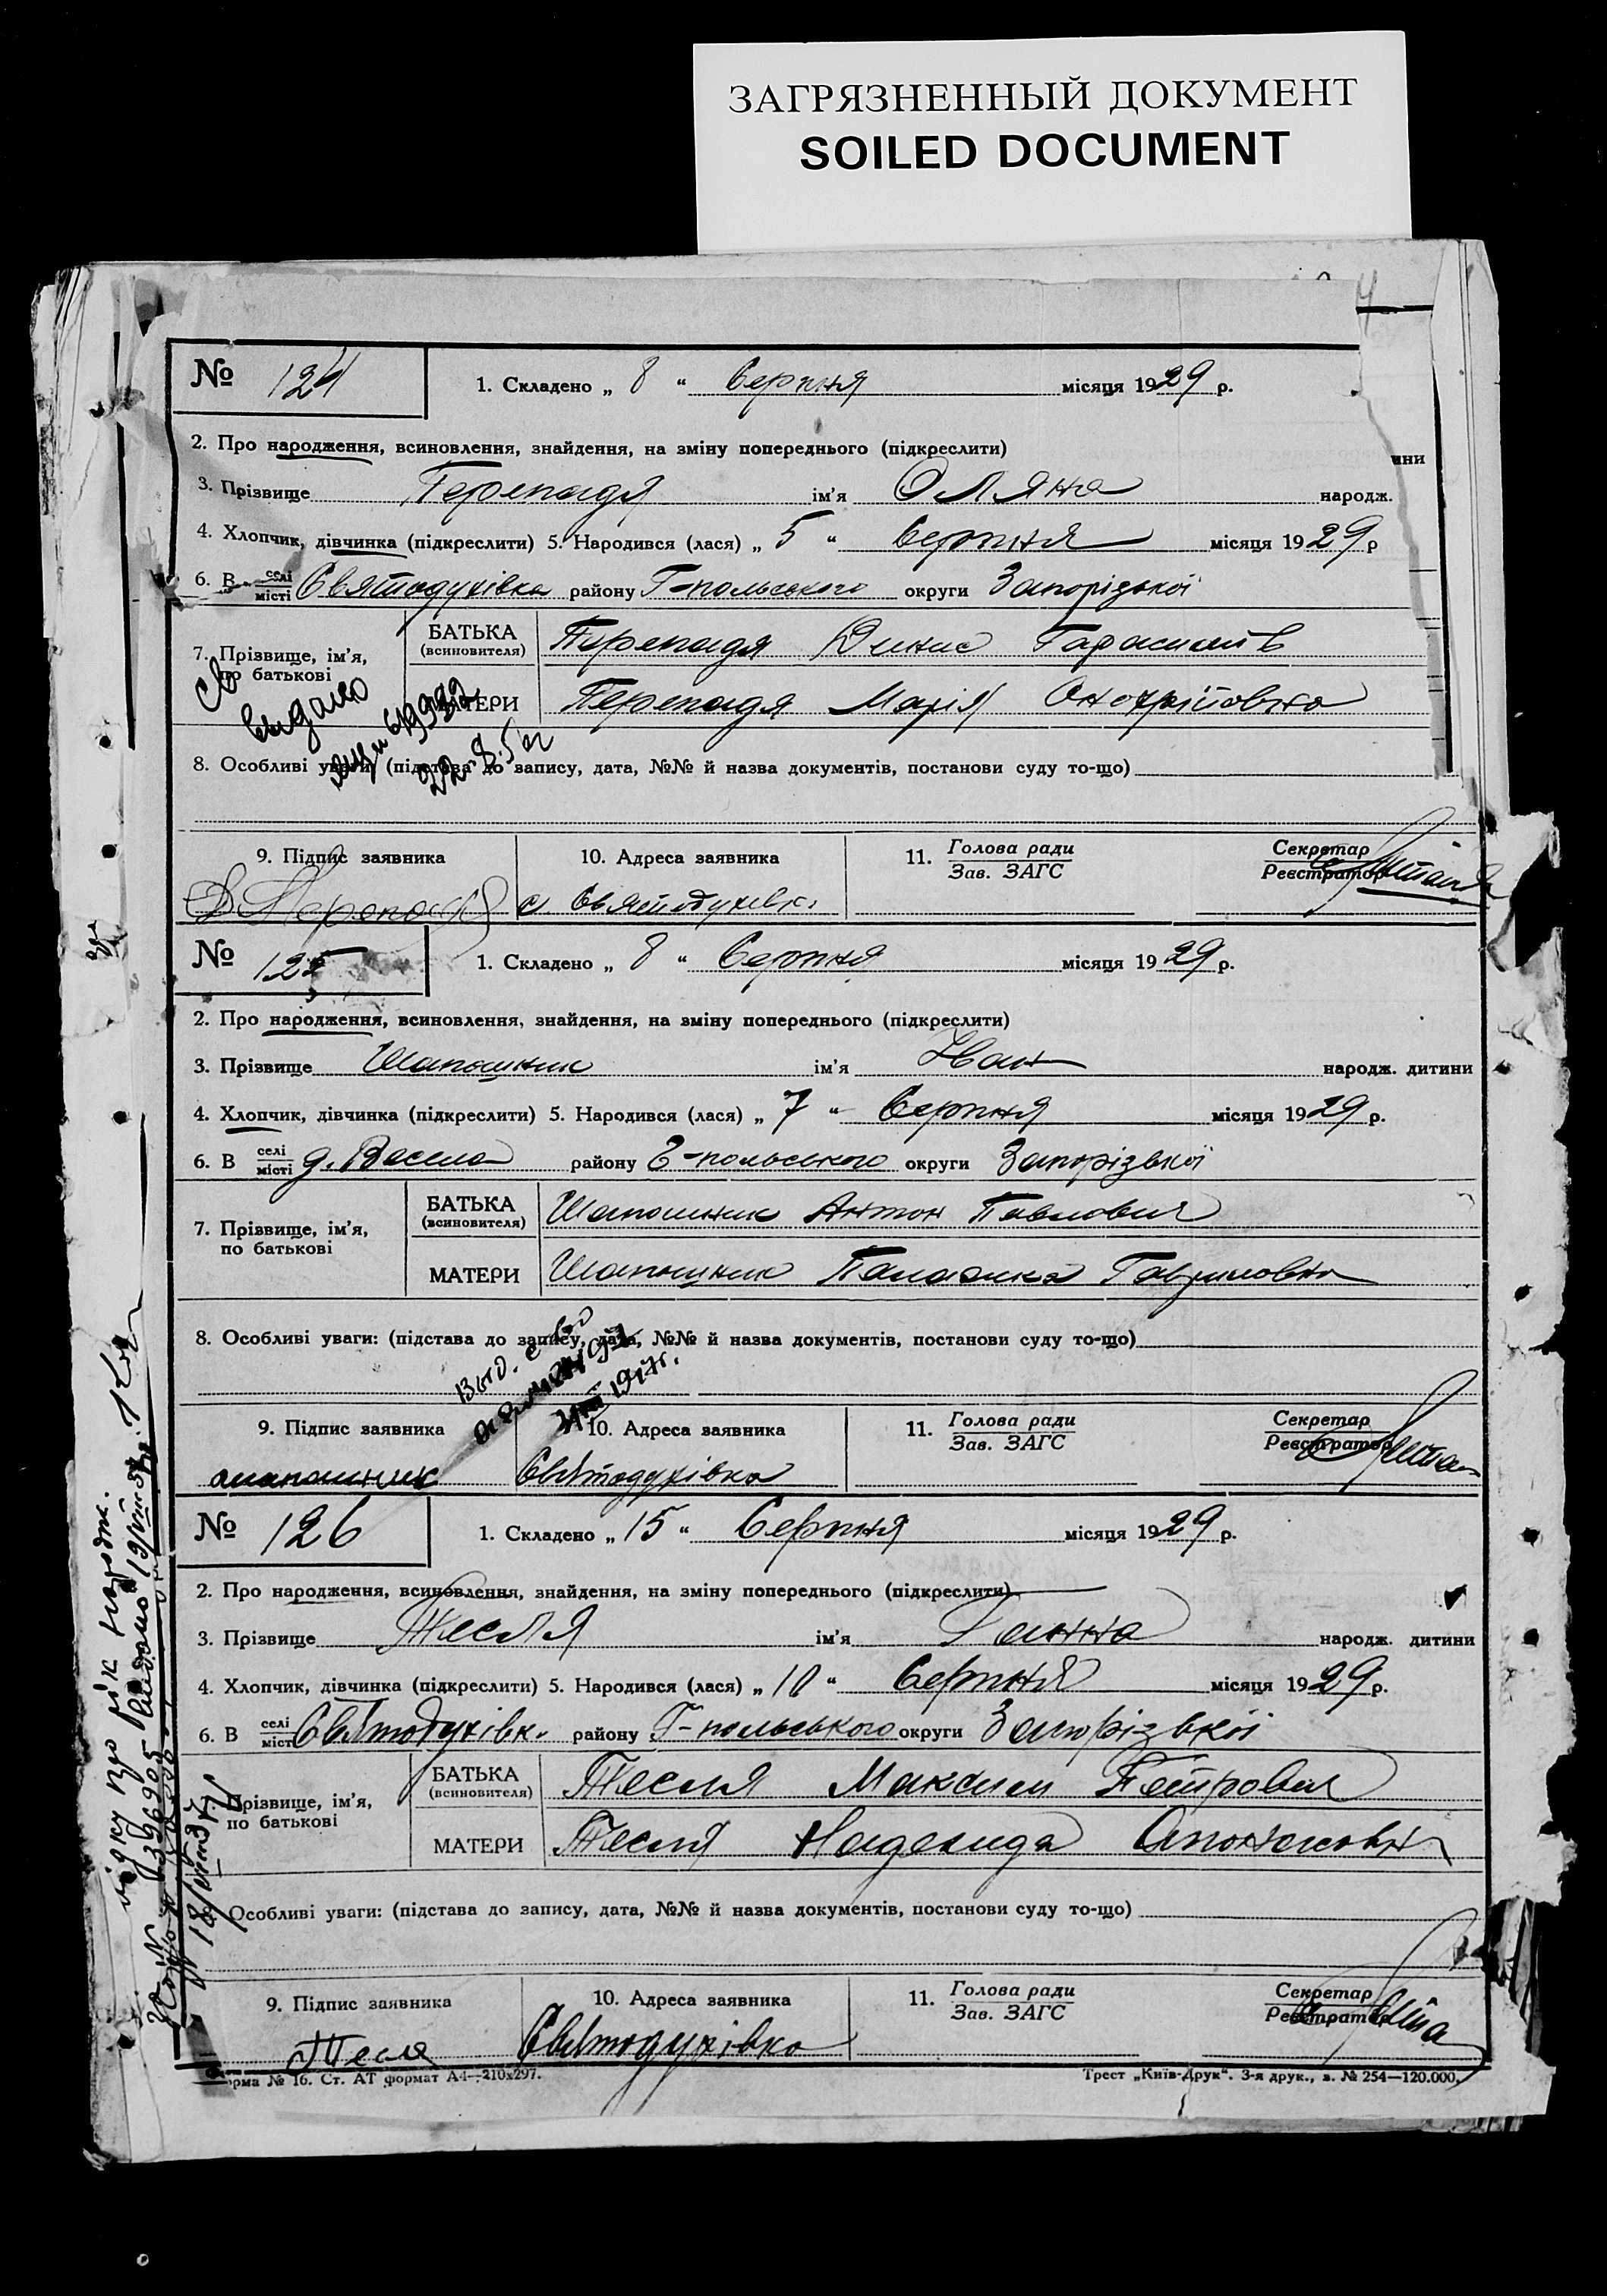 ЗАГРЯЗНЕННЫЙ ДОКУМЕНТ
SOILED DOCUMENT
4
№ 124 1. Складено „ 8 “ Серпня місяця 1929 р.
2. Про народження, всиновлення, знайдення, на зміну попереднього (підкреслити)
ини
3. Прізвище Перепадя ім’я Оляна народж.
4. Хлопчик, дівчинка (підкреслити) 5. Народився (лася) „ 5 “ Серпня місяця 1929 р
6. В селі місті Святодухівка району Г-польського округи Запорізької
7. Прізвище, ім’я, по батькові
БАТЬКА (всиновителя) Перепадя Денис Гарасимів
МАТЕРИ Перепадя Марія
св видано
8. Особливі уваги: (підстава до запису, дата, №№ й назва документів, постанови суду то-що)
9. Підпис заявника 10. Адреса заявника 11. Голова ради Зав. ЗАГС Секретар Реєстратор
с Святодухівк.
№ 125 1. Складено „ 8 “ Серпня місяця 1929 р.
2. Про народження, всиновлення, знайдення, на зміну попереднього (підкреслити)
3. Прізвище Шапошник ім’я Іван народж. дитини
4. Хлопчик, дівчинка (підкреслити) 5. Народився (лася) „ 7 “ Серпня місяця 1929 р.
6. В селі місті району Г-польського округи Запорізької
7. Прізвище, ім’я, по батькові
БАТЬКА (всиновителя) Шапошник Антон Павлович
МАТЕРИ Шапошник Палажка Гавриловна
8. Особливі уваги: (підстава до запису, дата, №№ й назва документів, постанови суду то-що)
9. Підпис заявника 10. Адреса заявника 11. Голова ради Зав. ЗАГС Секретар Реєстратор
шапошник Святодухівка
№ 126 1. Складено „ 15 “ Серпня місяця 1929 р.
2. Про народження, всиновлення, знайдення, на зміну попереднього (підкреслити)
3. Прізвище Тесля ім’я Ганна народж. дитини
4. Хлопчик, дівчинка (підкреслити) 5. Народився (лася) „ 10 “ Серпня місяця 1929 р.
6. В селі місті Святодухівк. району Г-польського округи Запорізької
Прізвище, ім’я, по батькові
БАТЬКА (всиновителя) Тесля Максим Петрович
МАТЕРИ Тесля Надежда
Особливі уваги: (підстава до запису, дата, №№ й назва документів, постанови суду то-що)
9. Підпис заявника 10. Адреса заявника 11. Голова ради Зав. ЗАГС Секретар Реєстратор
Тесля Святодухівка
орма № 16. Ст. АТ формат А4—210х297. Трест „Київ-Друк“. 3-я друк., з. № 254—120.000.